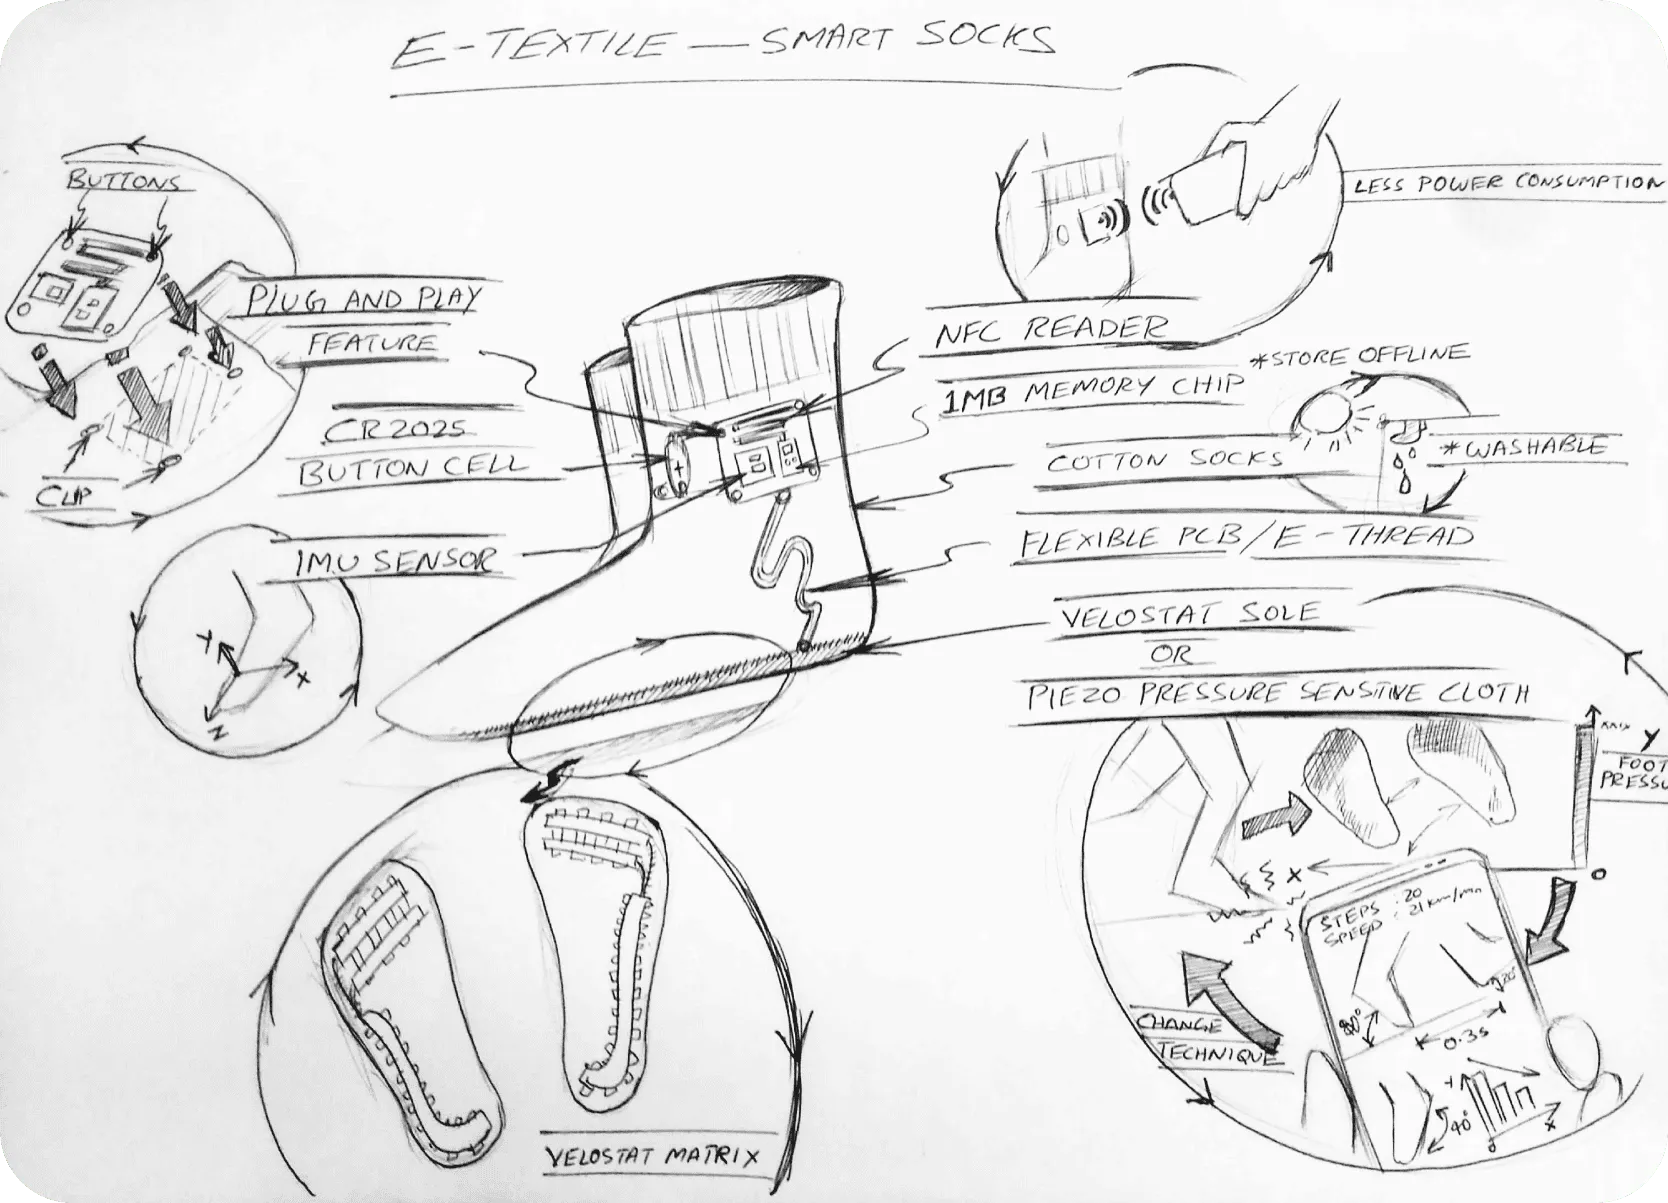 E-TEXTILE — SMART SOCKS
BUTTONS
PLUG AND PLAY
FEATURE
CR2025
BUTTON CELL
CLIP
IMU SENSOR
Y
X
Z
LESS POWER CONSUMPTION
NFC READER
*STORE OFFLINE
1MB MEMORY CHIP
COTTON SOCKS
*WASHABLE
FLEXIBLE PCB/E-THREAD
VELOSTAT SOLE
OR
PIEZO PRESSURE SENSITIVE CLOTH
MAX
Y
FOOT
PRESSU
0
X
STEPS : 20
SPEED : 21km/mn
20°
80°
0.3s
CHANGE
TECHNIQUE
40°
Y
0
X
VELOSTAT MATRIX